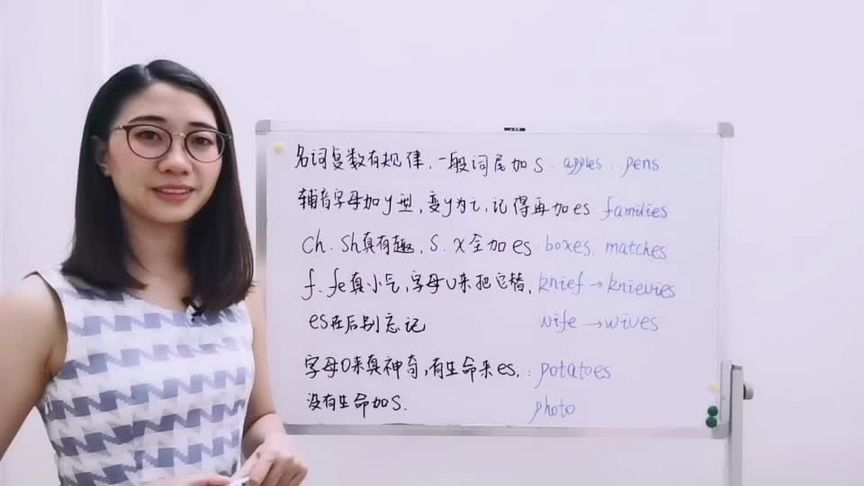 名词复数有规律，一般词尾加s. apples. pens
辅音字母加y型，变y为i，记得再加es families
ch. sh真有趣，s. x全加es: boxes. matches
f. fe真小气，字母v来把它替， knief → knievies
es在后别忘记 wife → wives
字母O来真神奇，有生命来es，: potatoes
没有生命加s. photo